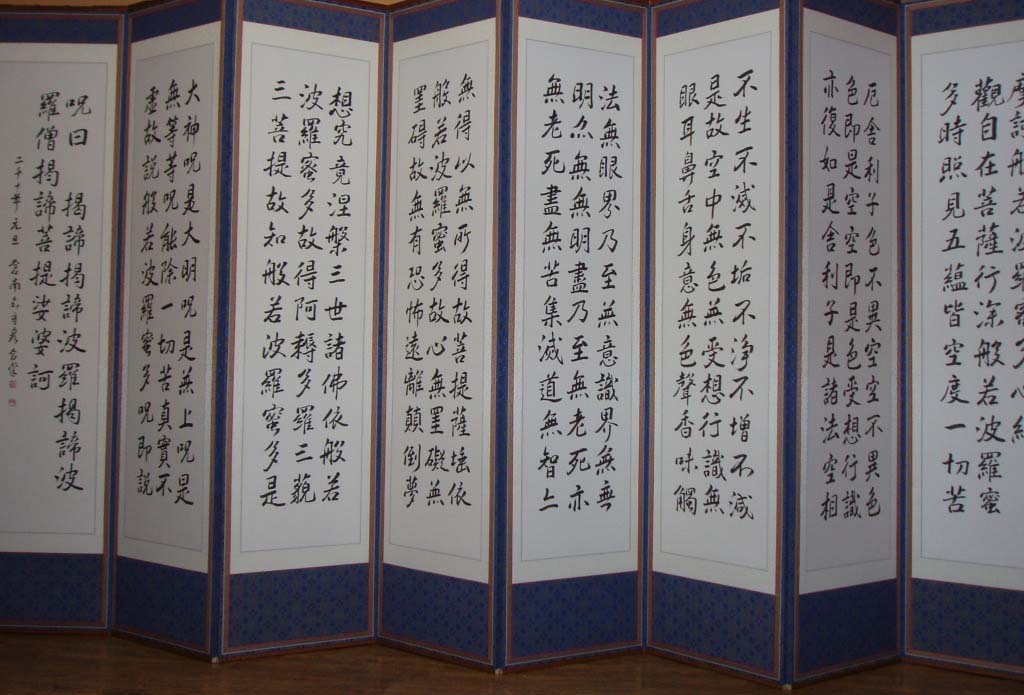 摩訶般若波羅蜜多心經
觀自在菩薩行深般若波羅蜜
多時照見五蘊皆空度一切苦
厄舍利子色不異空空不異色
色即是空空即是色受想行識
亦復如是舍利子是諸法空相
不生不滅不垢不淨不增不減
是故空中無色無受想行識無
眼耳鼻舌身意無色聲香味觸
法無眼界乃至無意識界無無
明亦無無明盡乃至無老死亦
無老死盡無苦集滅道無智亦
無得以無所得故菩提薩埵依
般若波羅蜜多故心無罣礙無
罣碍故無有恐怖遠離顛倒夢
想究竟涅槃三世諸佛依般若
波羅蜜多故得阿耨多羅三藐
三菩提故知般若波羅蜜多是
大神呪是大明呪是無上呪是
無等等呪能除一切苦真實不
虛故說般若波羅蜜多呪即說
呪曰 揭諦揭諦波羅揭諦波
羅僧揭諦菩提娑婆訶
二千十年元旦